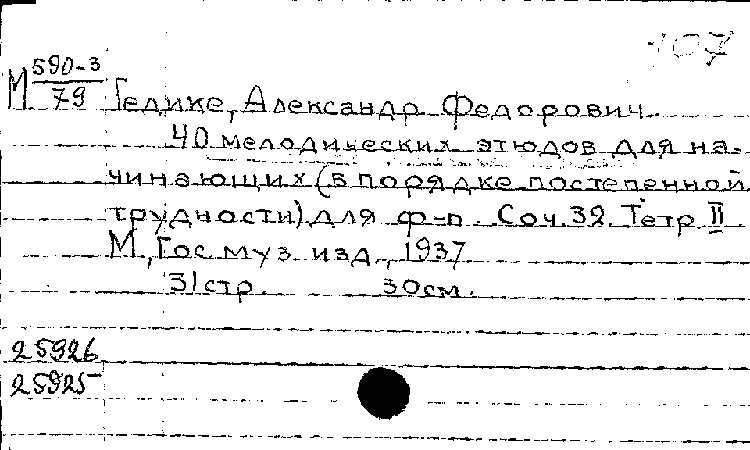 107
М 590-3/79
Гедике, Александр Федорович.
40 мелодических этюдов для на-
чинающих (в порядке постепенной
трудности) для ф-п. Соч. 32. Тетр II
М., Гос. муз. изд., 1937
31 стр. 30 см.
25926
25925